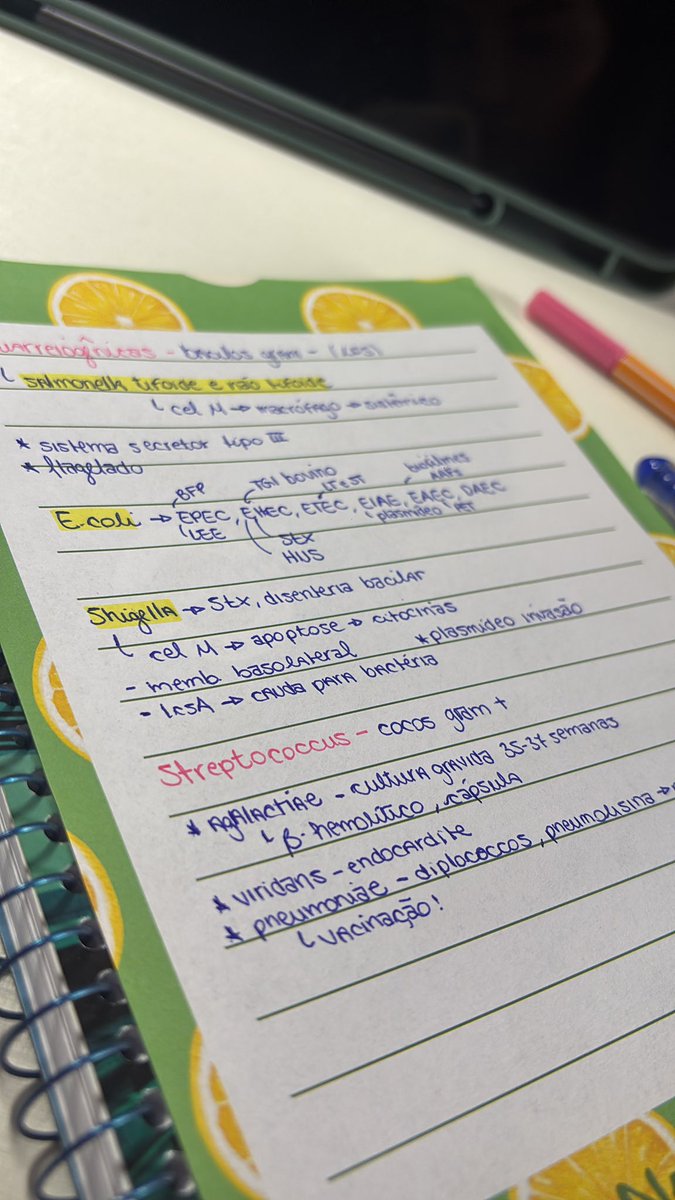 Diarreiogênicas - bacilos gram - (LPS)
↳ Salmonella tifoide e não tifoide
↳ cel M → macrófago → sistêmico
* sistema secretor tipo III
* flagelado
BFP TGI bovino LT e ST biofilmes AAFs
E. coli → EPEC, EHEC, ETEC, EIAE, EAEC, DAEC
LEE plasmídeo PET
Stx
HUS
Shigella → Stx, disenteria bacilar
↳ cel M → apoptose → citocinas
- memb. basolateral * plasmídeo invasão
- IcsA → cauda para bactéria
Streptococcus - cocos gram +
* Agalactiae - cultura grávida 35-37 semanas
↳ β-hemolítico, cápsula
* viridans - endocardite
* pneumoniae - diplococcos, pneumolisina →
↳ vacinação!